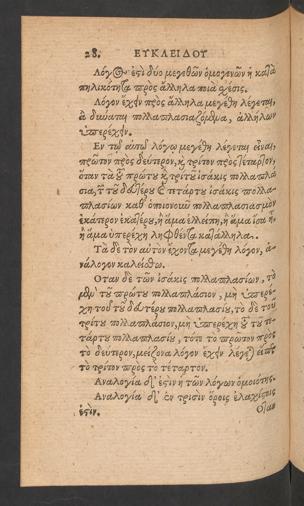 28. ΕΥΚΛΕΙΔΟΥ
Λόγος ἐστὶ δύο μεγεθῶν ὁμογενῶν ἡ κατὰ
πηλικότητα πρὸς ἄλληλα ποιὰ σχέσις.
Λόγον ἔχειν πρὸς ἄλληλα μεγέθη λέγεται,
ἃ δύναται πολλαπλασιαζόμενα, ἀλλήλων
ὑπερέχειν.
Εν τῷ αὐτῷ λόγῳ μεγέθη λέγεται εἶναι,
πρῶτον πρὸς δεύτερον, καὶ τρίτον πρὸς τέταρτον,
ὅταν τὰ τοῦ πρώτου καὶ τρίτου ἰσάκις πολλαπλά
σια, τῶν τοῦ δευτέρου καὶ τετάρτου ἰσάκις πολλα-
πλασίων καθ' ὁποιονοῦν πολλαπλασιασμὸν
ἑκάτερον ἑκατέρου, ἢ ἅμα ἐλλείπῃ, ἢ ἅμα ἴσα ᾖ,
ἢ ἅμα ὑπερέχῃ ληφθέντα κατάλληλα.
Τὰ δὲ τὸν αὐτὸν ἔχοντα μεγέθη λόγον, ἀ-
νάλογον καλείσθω.
Οταν δὲ τῶν ἰσάκις πολλαπλασίων, τὸ
μὲν τοῦ πρώτου πολλαπλάσιον, μὴ ὑπερέ-
χῃ τοῦ τοῦ δευτέρου πολλαπλασίου, τὸ δὲ τοῦ
τρίτου πολλαπλάσιον, μὴ ὑπερέχῃ τοῦ τε-
τάρτου πολλαπλασίου, τότε τὸ πρῶτον πρὸς
τὸ δεύτερον, μείζονα λόγον ἔχειν λέγεται ἤπερ
τὸ τρίτον πρὸς τὸ τέταρτον.
Αναλογία δ' ἐστὶν ἡ τῶν λόγων ὁμοιότης.
Αναλογία δ' ἐν τρισὶν ὅροις ἐλαχίστοις
ἐστίν. Οταν